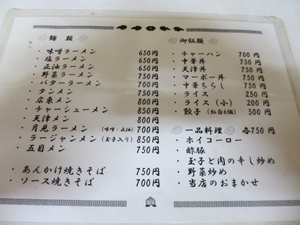 麺類
・味噌ラーメン 650円
・塩ラーメン 650円
・正油ラーメン 650円
・野菜ラーメン 750円
・バターラーメン 700円
・タンメン 750円
・広東メン 800円
・チャーシューメン 850円
・天津メン 800円
・月見ラーメン (味噌・正油) 700円
・ラージャンメン (玉子入り) 850円
・五目メン 750円
・あんかけ焼きそば 750円
・ソース焼きそば 700円
御飯類
・チャーハン 700円
・中華丼 750円
・天津丼 750円
・マーボー丼 750円
・中華ちらし 750円
・ライス 250円
・ライス(小) 200円
・餃子 500円
一品料理 各750円
・ホイコーロー
・酢豚
・玉子と肉の辛し炒め
・野菜炒め
・当店のおまかせ